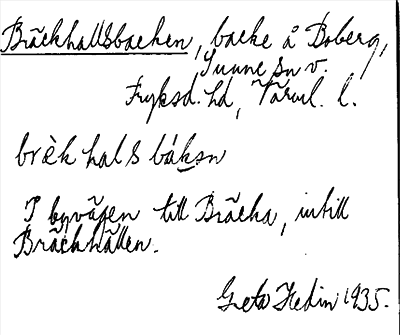 Bräckhallsbacken, backe å Boberg,
Sunne sn v.
Fryksd. hd, Värml. l.
brὲk hal s bákən
I byvägen till Bräcka, intill
Bräckhällen.
Greta Hedin 1935.